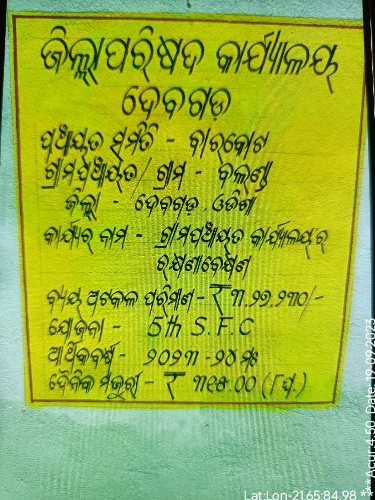 ଜିଲ୍ଲାପରିଷଦ କାର୍ଯ୍ୟାଳୟ
ଦେବଗଡ଼
ପଞ୍ଚାୟତ ସମିତି - ବାରକୋଟ
ଗ୍ରାମପଞ୍ଚାୟତ/ ଗ୍ରାମ - ବଳଣ୍ଡା
ଜିଲ୍ଲା - ଦେବଗଡ଼, ଓଡିଶା
କାର୍ଯ୍ୟର ନାମ - ଗ୍ରାମପଞ୍ଚାୟତ କାର୍ଯ୍ୟାଳୟର
ରକ୍ଷଣାବେକ୍ଷଣ
ବ୍ୟୟ ଅଟକଳ ପରିମାଣ - ₹ ୩,୨୭,୨୩୦/-
ଯୋଜନା - 5th S.F.C
ଆର୍ଥିକବର୍ଷ - ୨୦୨୩ -୨୪
ଦୈନିକ ମଜୁରୀ - ₹ ୩୧୫.00
Lat:Lon-2165:84.98 ***Acur:4.50 Date:19.09.2023